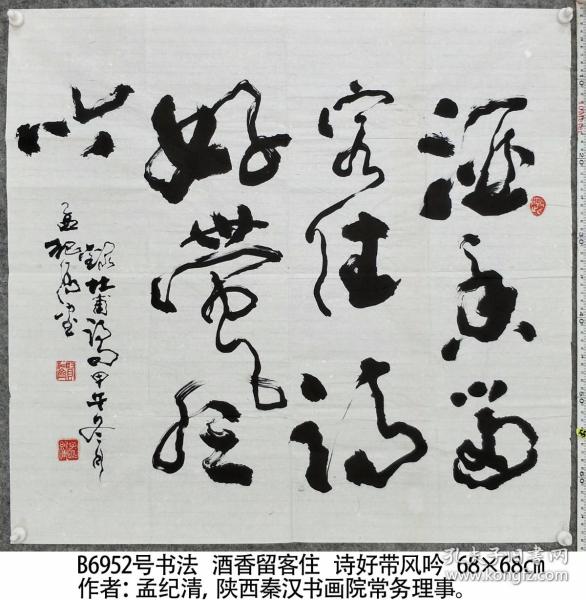 酒香留
客住诗
好帶風
吟
錄杜甫诗句甲午冬月
孟纪清書
B6952号书法 酒香留客住 诗好带风吟 68×68㎝
作者: 孟纪清, 陕西秦汉书画院常务理事。